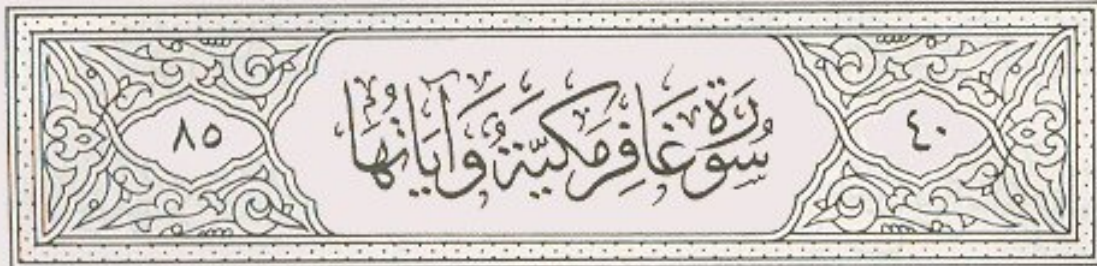 ٤٠ سُورَةُ غَافِرٍ مَكِّيَّةٌ وَآيَاتُهَا ٨٥